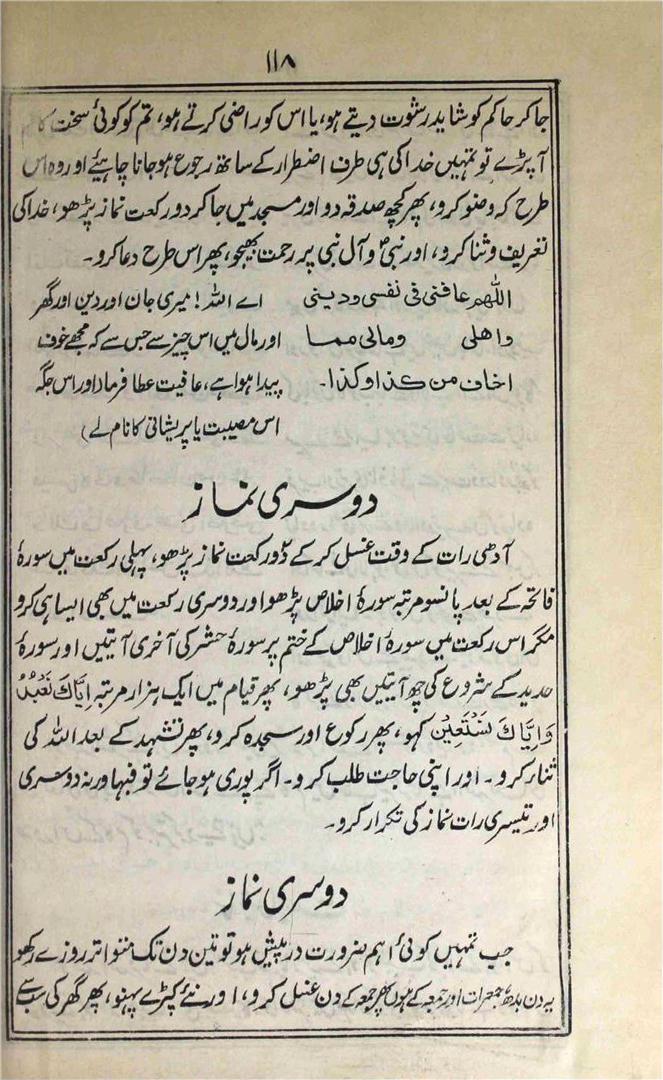 ۱۱۸
جا کر حاکم کو شاید رشوت دیتے ہو، یا اس کو راضی کرتے ہو، تم کو کوئی سخت کام
آپڑے تو تمہیں خدا کی ہی طرف اضطرار کے ساتھ رجوع ہوجانا چاہیئے اور وہ اس
طرح کہ وضو کرو، پھر کچھ صدقہ دو اور مسجد میں جا کر دو رکعت نماز پڑھو، خدا کی
تعریف و ثنا کرو، اور نبیؐ و آل نبی پر رحمت بھیجو، پھر اس طرح دعا کرو۔
اللهم عافنى فى نفسى ودينى
واهلى ومالى مما
اخاف من كذا وكذا۔
اے اللہ! میری جان اور دین اور گھر
اور مال میں اس چیز سے جس سے کہ مجھے خوف
پیدا ہوا ہے، عافیت عطا فرما (اور اس جگہ
اس مصیبت یا پریشانی کا نام لے)
دوسری نماز
آدھی رات کے وقت غسل کر کے دو رکعت نماز پڑھو، پہلی رکعت میں سورۂ
فاتحہ کے بعد پانسو مرتبہ سورۂ اخلاص پڑھو اور دوسری رکعت میں بھی ایسا ہی کرو
مگر اس رکعت میں سورۂ اخلاص کے ختم پر سورۂ حشر کی آخری آیتیں اور سورۂ
حدید کے شروع کی چھ آیتیں بھی پڑھو، پھر قیام میں ایک ہزار مرتبہ اِیَّاكَ نَعْبُدُ
وَاِیَّاكَ نَسْتَعِیْنُ کہو، پھر رکوع اور سجدہ کرو، پھر تشہد کے بعد اللہ کی
ثنا کرو۔ اور اپنی حاجت طلب کرو۔ اگر پوری ہو جائے تو فبہا ورنہ دوسری
اور تیسری رات نماز کی تکرار کرو۔
دوسری نماز
جب تمہیں کوئی اہم ضرورت درپیش ہو تو تین دن تک متواتر روزے رکھو
یہ دن بدھ، جمعرات اور جمعہ کے ہوں پھر جمعہ کے دن غسل کرو، اور نئے کپڑے پہنو، پھر گھر کی سب سے